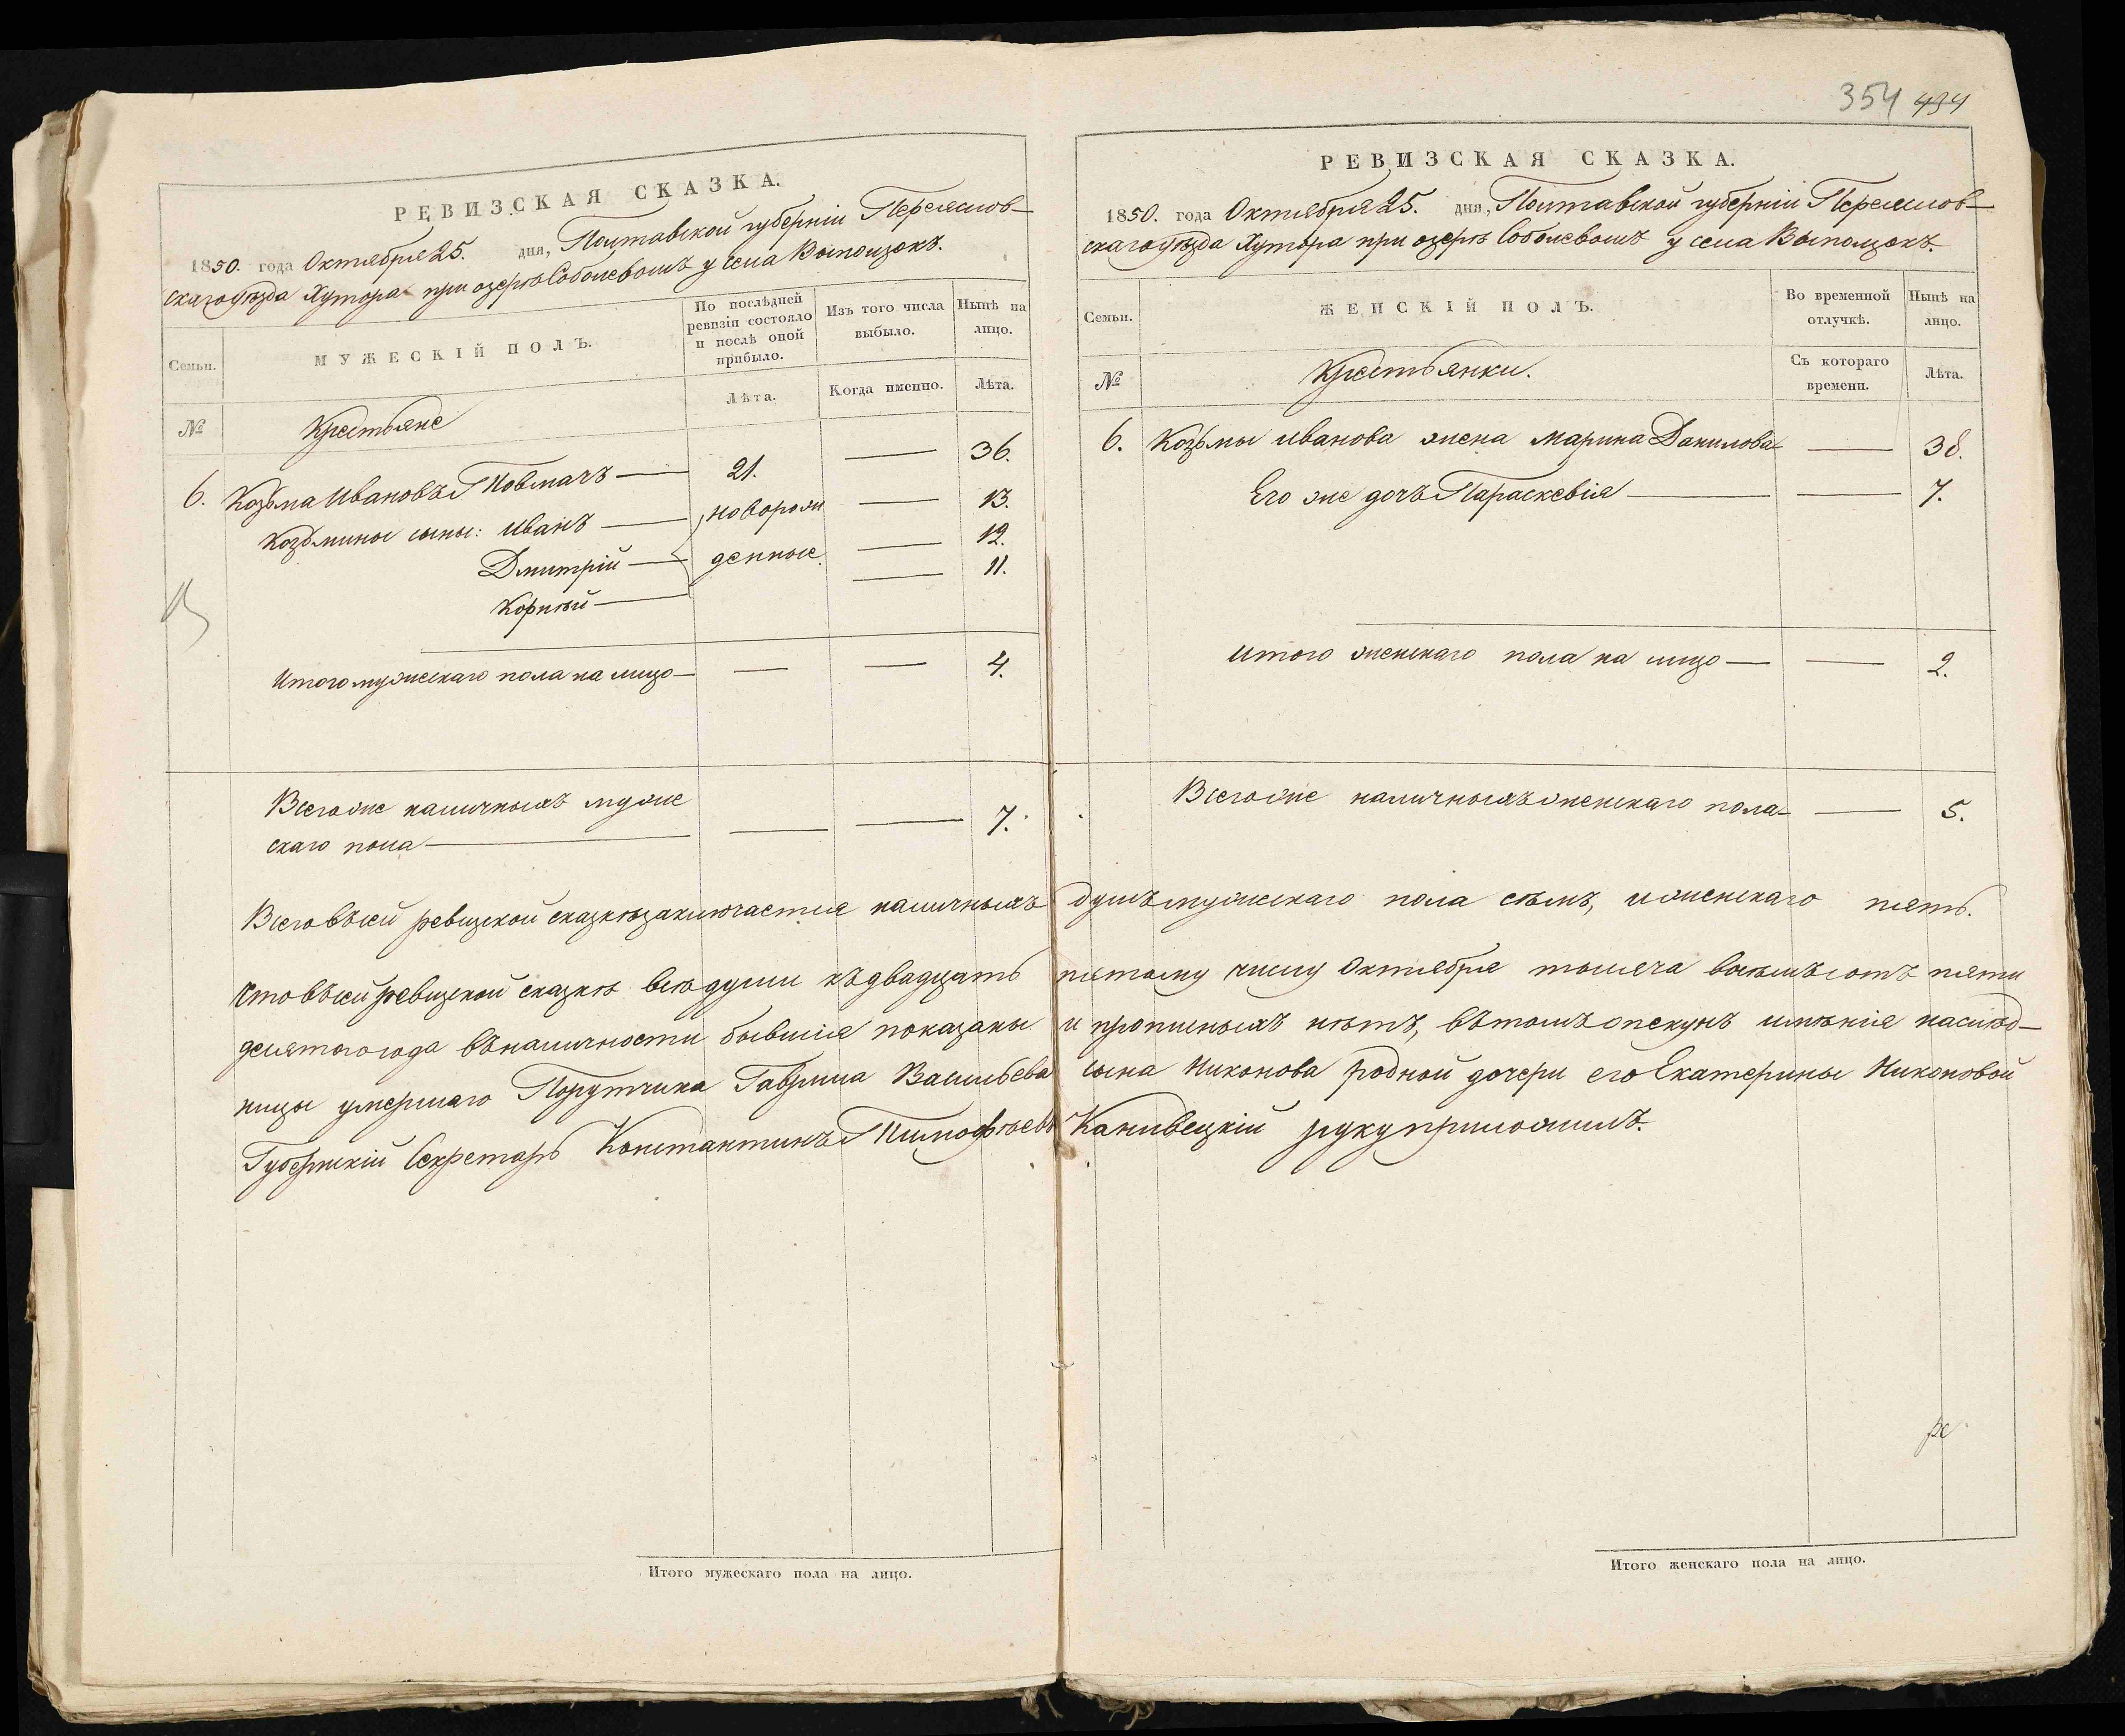 РЕВИЗСКАЯ СКАЗКА.
1850. года Октября 25. дня, Полтавской губерніи Переяслов-
скаго уѣзда Хутора при озерѣ Соболевомъ у села Выползокъ.
Семьи.
МУЖЕСКІЙ ПОЛЪ.
По послѣдней ревизіи состояло и послѣ оной прибыло.
Изъ того числа выбыло.
Нынѣ на лицо.
№
Крестьяне
Лѣта.
Когда именно.
Лѣта.
6. Козьма Ивановъ Товмачъ — 21. — 36.
Козьмины сыны: Иванъ — новорож — 13.
Дмитрій — денные. — 12.
Корнѣй — — 11.
Итого мужескаго пола на лицо — — — 4.
Всего же наличныхъ муже
скаго пола — — — 7.
354 494
РЕВИЗСКАЯ СКАЗКА.
1850. года Октября 25. дня, Полтавской губерніи Переяслов-
скаго уѣзда Хутора при озерѣ Соболевомъ у села Выползокъ.
Семьи.
ЖЕНСКІЙ ПОЛЪ.
Во временной отлучкѣ.
Нынѣ на лицо.
№
Крестьянки.
Съ котораго времени.
Лѣта.
6. Козьмы Иванова жена Марина Данилова — 38.
Его же дочь Параскевія — — 7.
Итого женскаго пола на лицо — — 2.
Всего же наличныхъ женскаго пола — — 5.
Всего въ сей ревизской сказкѣ заключается наличныхъ душъ мужескаго пола сѣмъ, и женскаго пять.
Что въ сей ревизской сказкѣ всѣ души къ двадцать пятому числу Октября тысяча восемъсотъ пяти
десятого года въ наличности бывшія показаны и прописныхъ нѣтъ, въ томъ опекунъ имѣнія наслѣд-
ницы умершаго Порутчика Гаврила Васильева сына Никонова родной дочери его Екатерины Никоновой
Губернскій Секретарь Константинъ Тимофѣевъ Канивецкій руку приложилъ.
Итого мужескаго пола на лицо.
Итого женскаго пола на лицо.